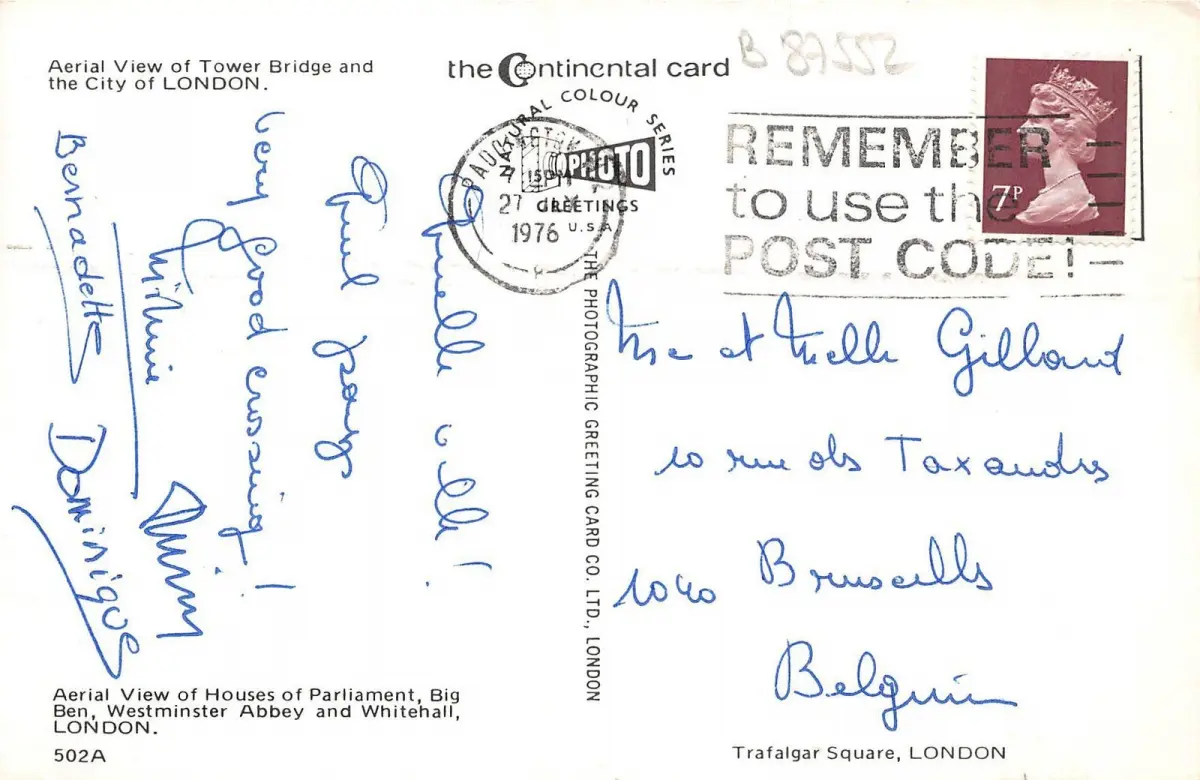 Aerial View of Tower Bridge and
the City of LONDON.
the Continental card
NATURAL COLOUR SERIES
PHOTO
GREETINGS
U.S.A
B 87222
PADDINGTON
27
1976
REMEMBER
to use the
POST CODE!
7P
Quelle ville!
Quel pays
very good crossing!
Bernadette
Dominique
THE PHOTOGRAPHIC GREETING CARD CO. LTD., LONDON
Mme et Melle Gilland
10 rue des Taxandres
1040 Bruxelles
Belgium
Aerial View of Houses of Parliament, Big
Ben, Westminster Abbey and Whitehall,
LONDON.
502A
Trafalgar Square, LONDON